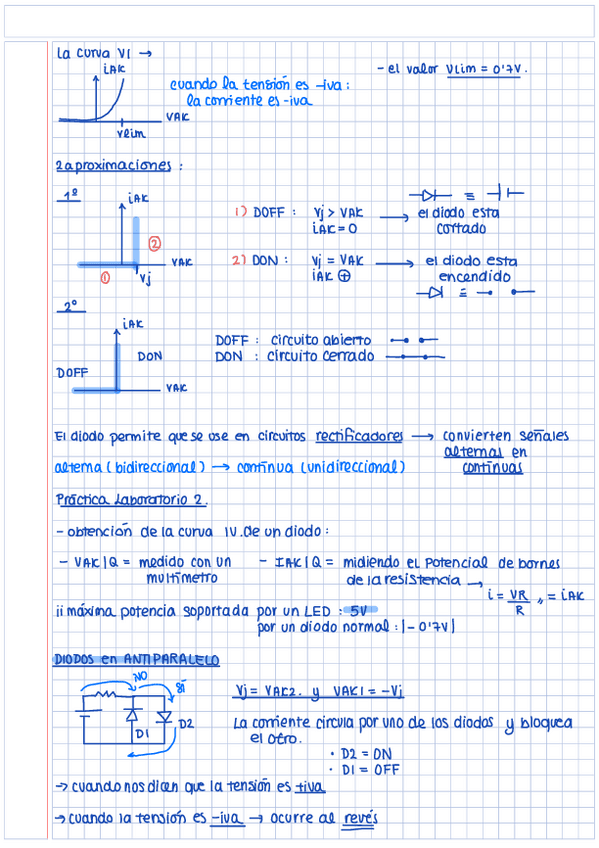 La curva VI →
iAK
VAK
Vlim
cuando la tensión es -iva:
la corriente es -iva
- el valor Vlim = 0'7V.
2 aproximaciones :
1º
iAK
②
①
VAK
Vj
1) DOFF : Vj > VAK → el diodo esta
iAK = 0 cortado
2) DON : Vj = VAK → el diodo esta
iAK ⊕ encendido
≡
2º
iAK
DON
DOFF
VAK
DOFF : circuito abierto
DON : circuito cerrado
El diodo permite que se use en circuitos rectificadores → convierten señales
alternas en
continuas
alterna (bidireccional) → continua (unidireccional)
Práctica Laboratorio 2.
- obtención de la curva IV. De un diodo :
- VAK|Q = medido con un
multímetro
- IAK|Q = midiendo el potencial de bornes
de la resistencia →
i = VR/R ,, = iAK
¡¡ máxima potencia soportada por un LED : 5V
por un diodo normal : |-0'7V|
DIODOS en ANTIPARALELO
NO
SÍ
D1
D2
Vj = VAK2. y VAK1 = -Vj
La corriente circula por uno de los diodos y bloquea
el otro.
· D2 = ON
· D1 = OFF
→ cuando nos dicen que la tensión es +iva
→ cuando la tensión es -iva → ocurre al revés